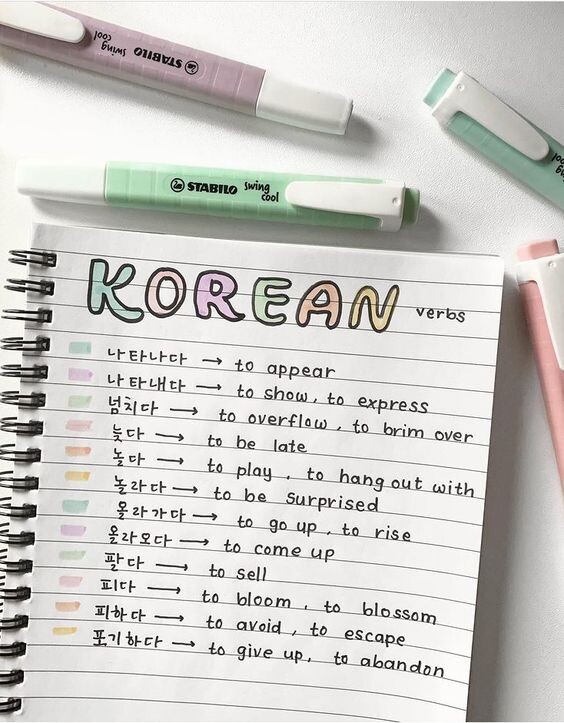 STABILO swing cool
STABILO swing cool
cool
KOREAN verbs
나타나다 → to appear
나타내다 → to show, to express
넘치다 → to overflow, to brim over
늦다 → to be late
놀다 → to play, to hang out with
놀라다 → to be surprised
올라가다 → to go up, to rise
올라오다 → to come up
팔다 → to sell
피다 → to bloom, to blossom
피하다 → to avoid, to escape
포기하다 → to give up, to abandon